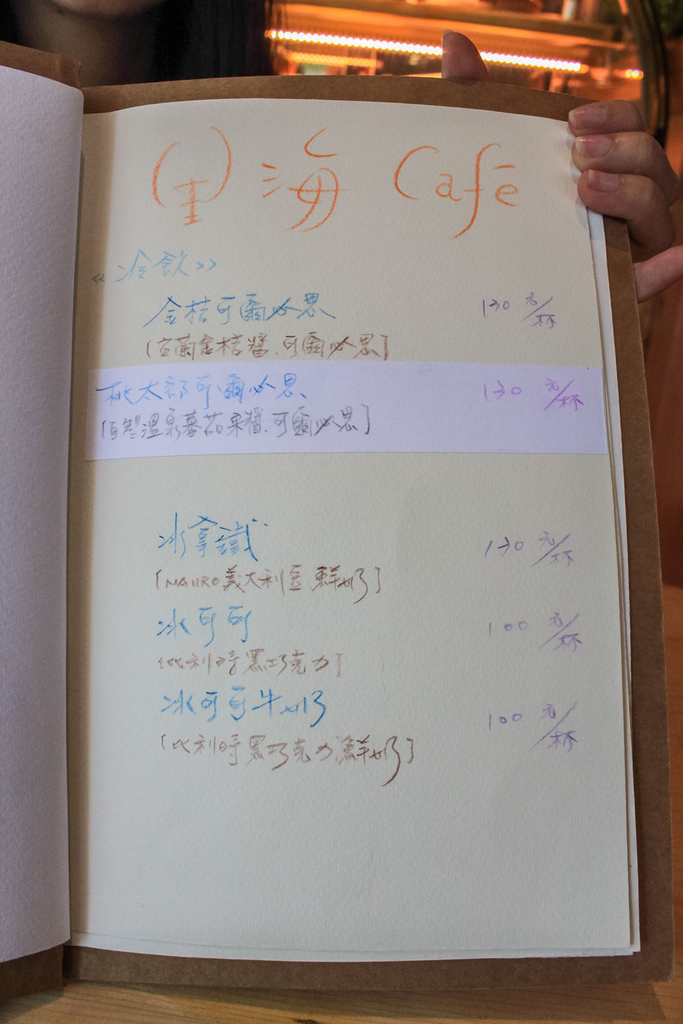 里海 Café
《冷飲》
金桔可爾必思 130元/杯
[宜蘭金桔醬、可爾必思]
桃太郎可爾必思、 130元/杯
[自然溫泉蕃茄果醬、可爾必思]
冰拿鐵 130元/杯
[MAURO義大利豆 鮮奶]
冰可可 100元/杯
[比利時黑巧克力]
冰可可牛奶 100元/杯
[比利時黑巧克力、鮮奶]